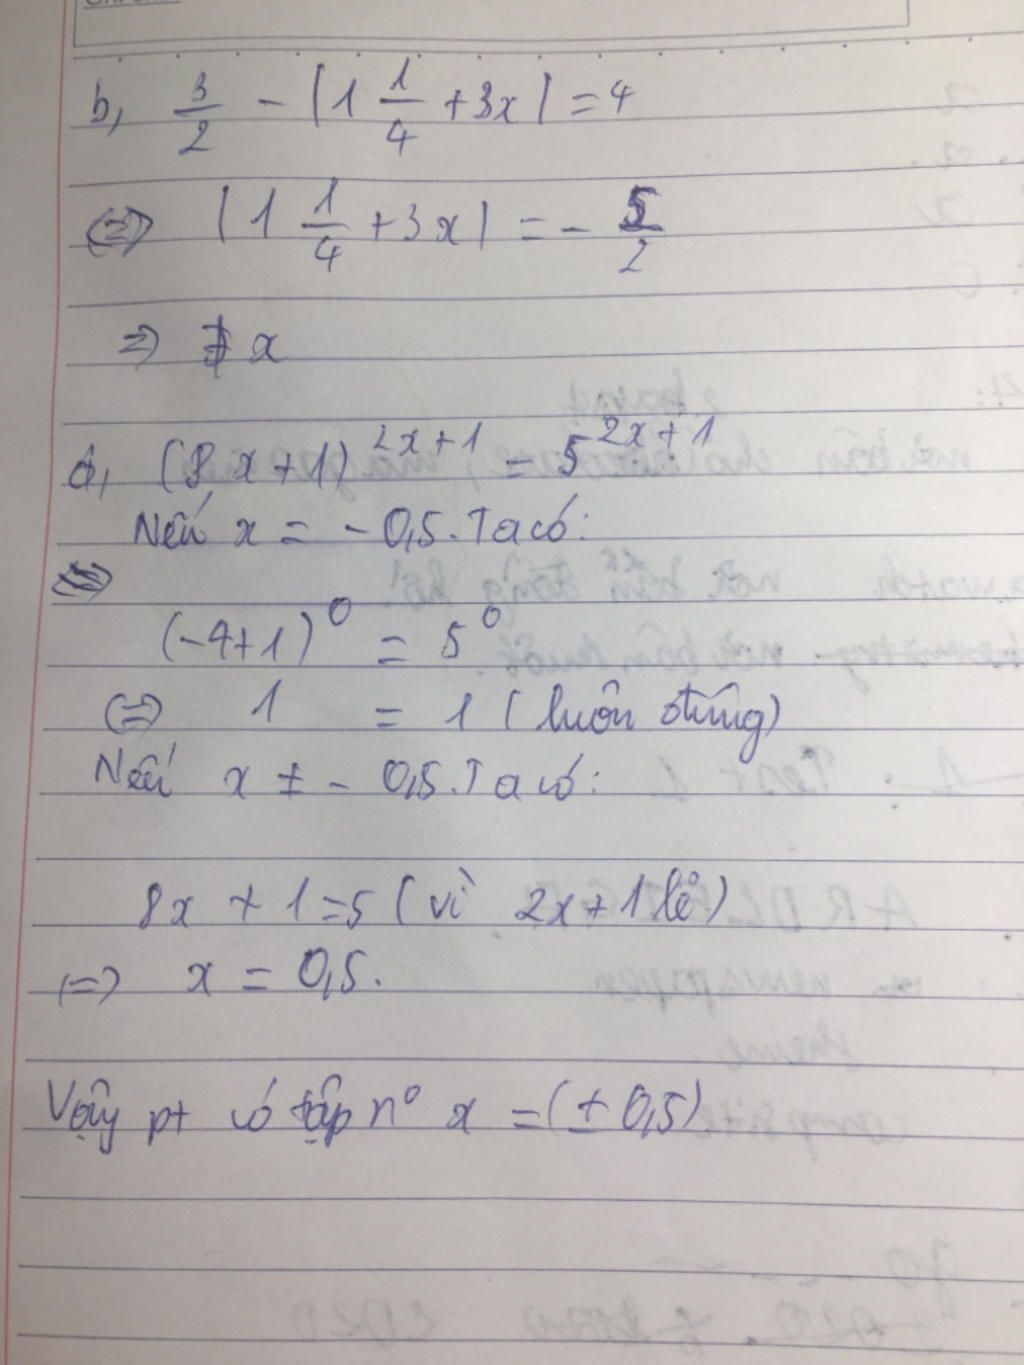 b, 3/2 - |1 1/4 + 3x| = 4
(=) |1 1/4 + 3x| = - 5/2
=) ∄ x
d, (8x+1)^2x+1 = 5^2x+1
Nếu x = - 0,5. Ta có:
(-4+1)^0 = 5^0
(=) 1 = 1 (luôn đúng)
Nếu x ≠ - 0,5. Ta có:
8x + 1 = 5 (vì 2x+1 lẻ)
(=) x = 0,5.
Vậy pt có tập n^o x = (± 0,5)